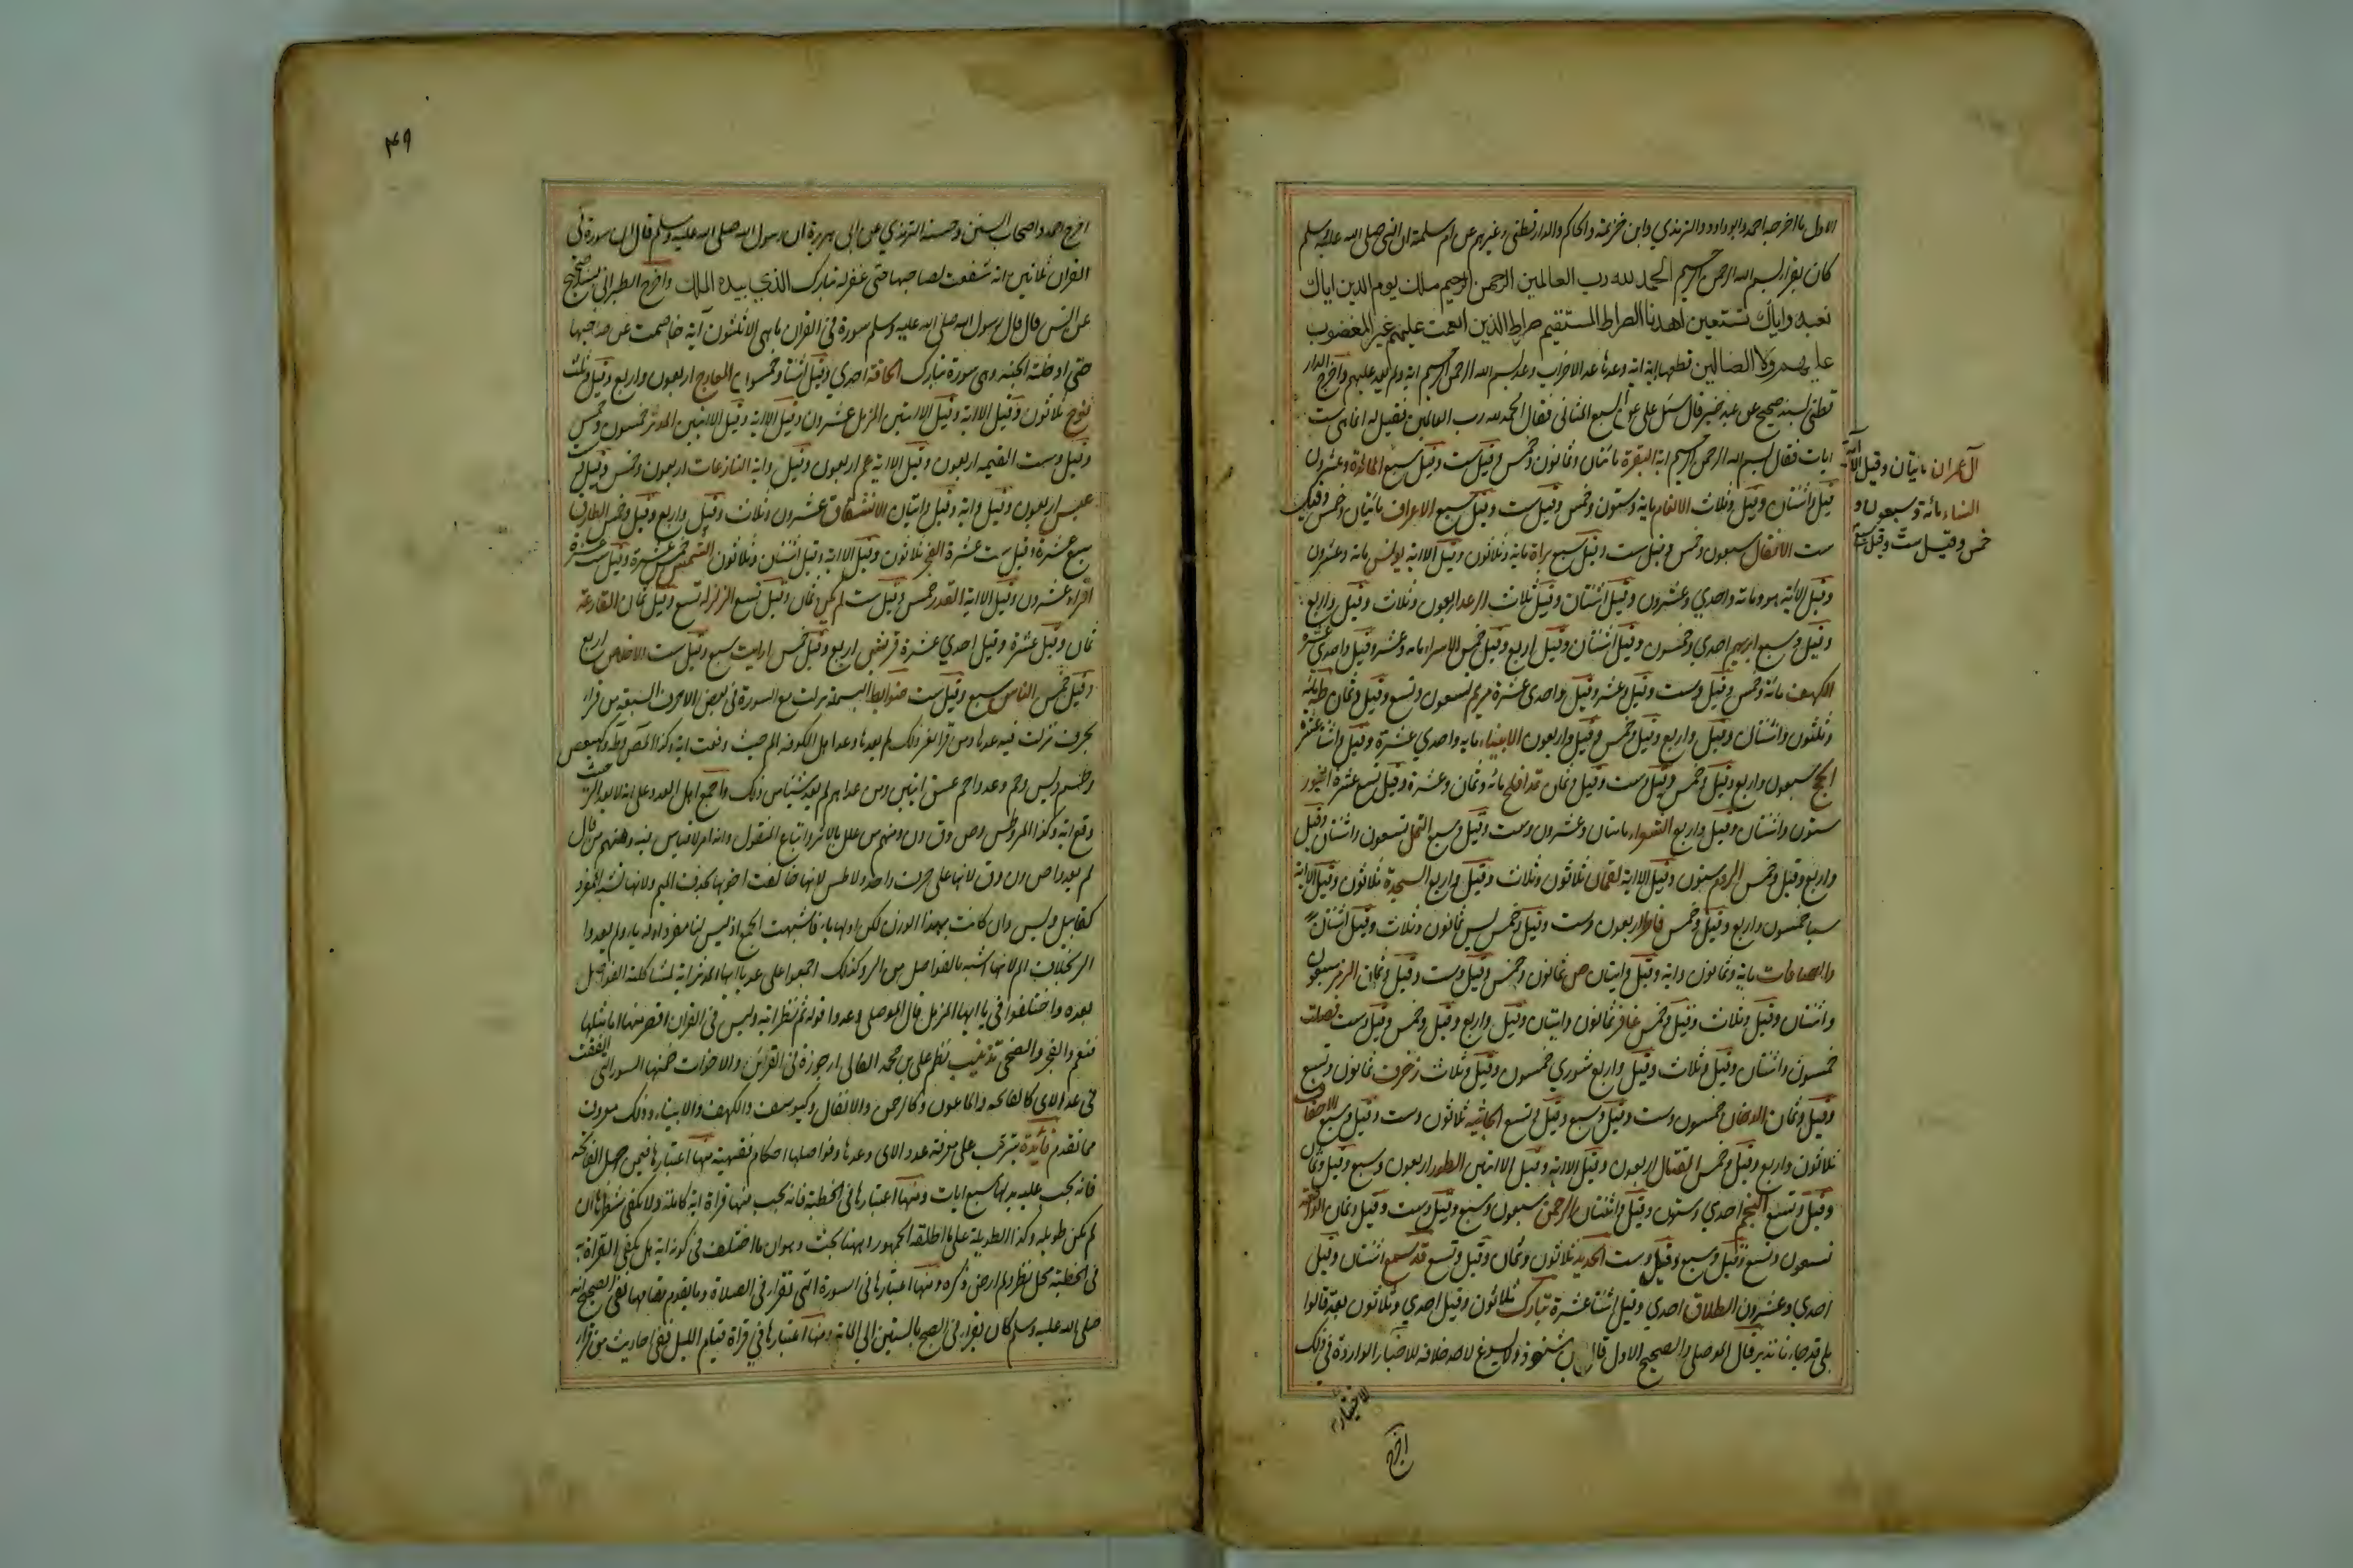 الاول ما اخرجه احمد وابو داود والترمذي وابن خزيمة والحاكم والدارقطني وغيرهم عن ام سلمة ان النبي صلى الله عليه وسلم
كان يقرأ بسم الله الرحمن الرحيم الحمد لله رب العالمين الرحمن الرحيم ملك يوم الدين اياك
نعبد واياك نستعين اهدنا الصراط المستقيم صراط الذين انعمت عليهم غير المغضوب
عليهم ولا الضالين قطعها اية اية وعدها عد الاعراب وعد بسم الله الرحمن الرحيم اية ولم يعد عليهم واخرج الدار
قطني بسند صحيح عن عبد خير قال سئل علي عن السبع المثاني فقال الحمد لله رب العالمين فقيل له انما هي ست
ايات فقال بسم الله الرحمن الرحيم اية البقرة مائتان وثمانون وخمس وقيل ست وقيل سبع المائدة وعشرون
قيل واثنتان وقيل وثلاث الانعام ماية وستون وخمس وقيل ست وقيل سبع الاعراف مائتان وخمس وقيل
ست الانفال سبعون وخمس وقيل ست وقيل سبع براة ماية وثلاثون وقيل الا اية يونس ماية وعشرون
وقيل الا اية هود ماية واحدي وعشرون وقيل اثنتان وقيل ثلاث الرعد اربعون وثلاث وقيل واربع
وقيل وسبع ابرهيم احدي وخمسون وقيل اثنتان وقيل اربع وقيل خمس الاسراء مايه وعشر وقيل واحدي عشرة
الكهف مائة وخمس وقيل وست وقيل وعشر وقيل واحدى عشرة مريم تسعون وتسع وقيل وثمان طه مائة
وثلثون واثنتان وقيل واربع وقيل وخمس وقيل واربعون الانبياء مايه واحدي عشرة وقيل واثنتا عشرة
الحج سبعون واربع وقيل وخمس وقيل وست وقيل وثمان قد افلح مائة وثمان وعشرة وقيل تسع عشرة النور
ستون واثنتان وقيل واربع الشعراء مايتان وعشرون وست وقيل وسبع النمل تسعون واثنتان وقيل
واربع وقيل وخمس الروم ستون وقيل الا اية لقمان ثلاثون وثلاث وقيل واربع السجدة ثلاثون وقيل الا اية
سبا خمسون واربع وقيل وخمس فاطر اربعون وست وقيل وخمس يس ثمانون وثلاث وقيل اثنتان
والصافات ماية وثمانون واية وقيل وايتان ص ثمانون وخمس وقيل وست وقيل وثمان الزمر سبعون
واثنتان وقيل وثلاث وقيل وخمس غافر ثمانون وايتان وقيل واربع وقيل وخمس وقيل وست فصلت
خمسون واثنتان وقيل وثلاث وقيل واربع شوري خمسون وقيل وثلاث زخرف ثمانون وتسع
وقيل وثمان الدخان خمسون وست وقيل وسبع وقيل وتسع الجاثيه ثلاثون وست وقيل وسبع الاحقاف
ثلاثون واربع وقيل وخمس القتال اربعون وقيل الا اية وقيل الا ايتين الطور اربعون وسبع وقيل وثمان
وقيل وتسع النجم احدي وستون وقيل واثنتان الرحمن سبعون وسبع وقيل وست وقيل وثمان الواقعة
تسعون وتسع وقيل وسبع وقيل وست الحديد ثلاثون وثمان وقيل وتسع قد سمع اثنتان وقيل
احدي وعشرون الطلاق احدي وقيل اثنتا عشرة تبارك ثلاثون وقيل احدي وثلاثون بعد قالوا
بلى قد جاءنا نذير قال الموصلي والصحيح الاول قال ولا يسوغ لاحد خلافه للاخبار الواردة في ذلك
اخرج
آل عمران مايتان وقيل الا آية
النساء مائة وسبعون و
خمس وقيل ست وقيل سبع
۴۹
اخرج احمد واصحاب السنن وحسنه الترمذي عن ابى هريرة ان رسول الله صلى الله عليه وسلم قال ان سورة في
القران ثلاثين اية شفعت لصاحبها حتى غفر له تبارك الذي بيده الملك واخرج الطبراني بسند صحيح
عن انس قال قال رسول الله صلى الله عليه وسلم سورة في القران ما هي الا ثلثون آية خاصمت عن صاحبها
حتى ادخلته الجنه وهي سورة تبارك الحاقة احدي وقيل اثنتا وخمسون المعارج اربعون واربع وقيل وثلث
نوح ثلاثون وقيل الا اية وقيل الا ايتين المزمل عشرون وقيل الا اية وقيل الا ايتين المدثر خمسون وخمس
وقيل وست القيمه اربعون وقيل الا اية عم اربعون وقيل واية النازعات اربعون وخمس وقيل وست
عبس اربعون وقيل واية وقيل وايتان الانشقاق عشرون وثلاث وقيل واربع وقيل وخمس الطارق
سبع عشرة وقيل ست عشرة الفجر ثلاثون وقيل الا اية وقيل اثنتان وثلاثون الشمس خمس عشرة وقيل ست عشرة
اقراء عشرون وقيل الا اية القدر خمس وقيل ست لم يكن ثمان وقيل تسع الزلزله تسع وقيل ثمان القارعة
ثمان وقيل عشرة وقيل احدي عشرة قريش اربع وقيل خمس ارايت سبع وقيل ست الاخلاص اربع
وقيل خمس الناس سبع وقيل ست ضوابط البسملة نزلت مع السورة في بعض الاحرف السبعة من قرا
بحرف نزلت فيه عدها ومن قرا بغير ذلك لم يعدها وعد اهل الكوفه الم حيث وقعت اية وكذا المص وطه وكهيعص
وطسم ويس وحم وعدوا حم عسق ايتين ومن عداهم لم يعد شيئا من ذلك واجمع اهل العدد على انه لا يعد الر حيث
وقع اية وكذا المر وطس وص وق ون ومنهم من علل بالاثر واتباع المنقول وانه امر لا قياس فيه ومنهم من قال
لم يعدوا ص ون وق لانها على حرف واحد ولا طس لانها خالفت اخويها بحذف الميم ولانها تشبه المفرد
كقابيل ويس وان كانت بهذا الوزن لكن اولها ياء فاشبهت الجمع اذ ليس لنا مفرد اوله ياء ولم يعدوا
الر بخلاف الم لانها اشبه بالفواصل من الر وكذلك اجمعوا على عد يا ايها المدثر اية لمشاكلته الفواصل
بعده واختلفوا في يا ايها المزمل قال الموصلي وعدوا قوله ثم نظر اية وليس في القران اقصر منها اما مثلها
فعم والفجر والضحى تذنيب نظم علي بن محمد الغالي ارجوزة في القرائن والاخوات ضمنها السور التي اتفقت
في عد الاي كالفاتحة والماعون وكالرحمن والانفال وكيوسف والكهف والانبياء وذلك معروف
مما تقدم فائدة يترتب على معرفة عدد الاي وعدها وفواصلها احكام فقهية منها اعتبارها فيمن جهل الفاتحة
فانه يجب عليه بدلها سبع ايات ومنها اعتبارها في الخطبة فانه يجب فيها قراة اية كاملة ولا يكفي شطرها ان
لم يكن طويلة وكذا الطويلة على ما اطلقه الجمهور وههنا بحث وهو ان ما اختلف في كونه اية هل يكفي القراة به
في الخطبة محل نظر ولم ار من ذكره ومنها اعتبارها في السورة التي تقرا في الصلاة وما يقوم مقامها ففي الصحيح انه
صلى الله عليه وسلم كان يقرا في الصبح بالستين الي الماية ومنها اعتبارها في قراة قيام الليل ففي احاديث من قرا